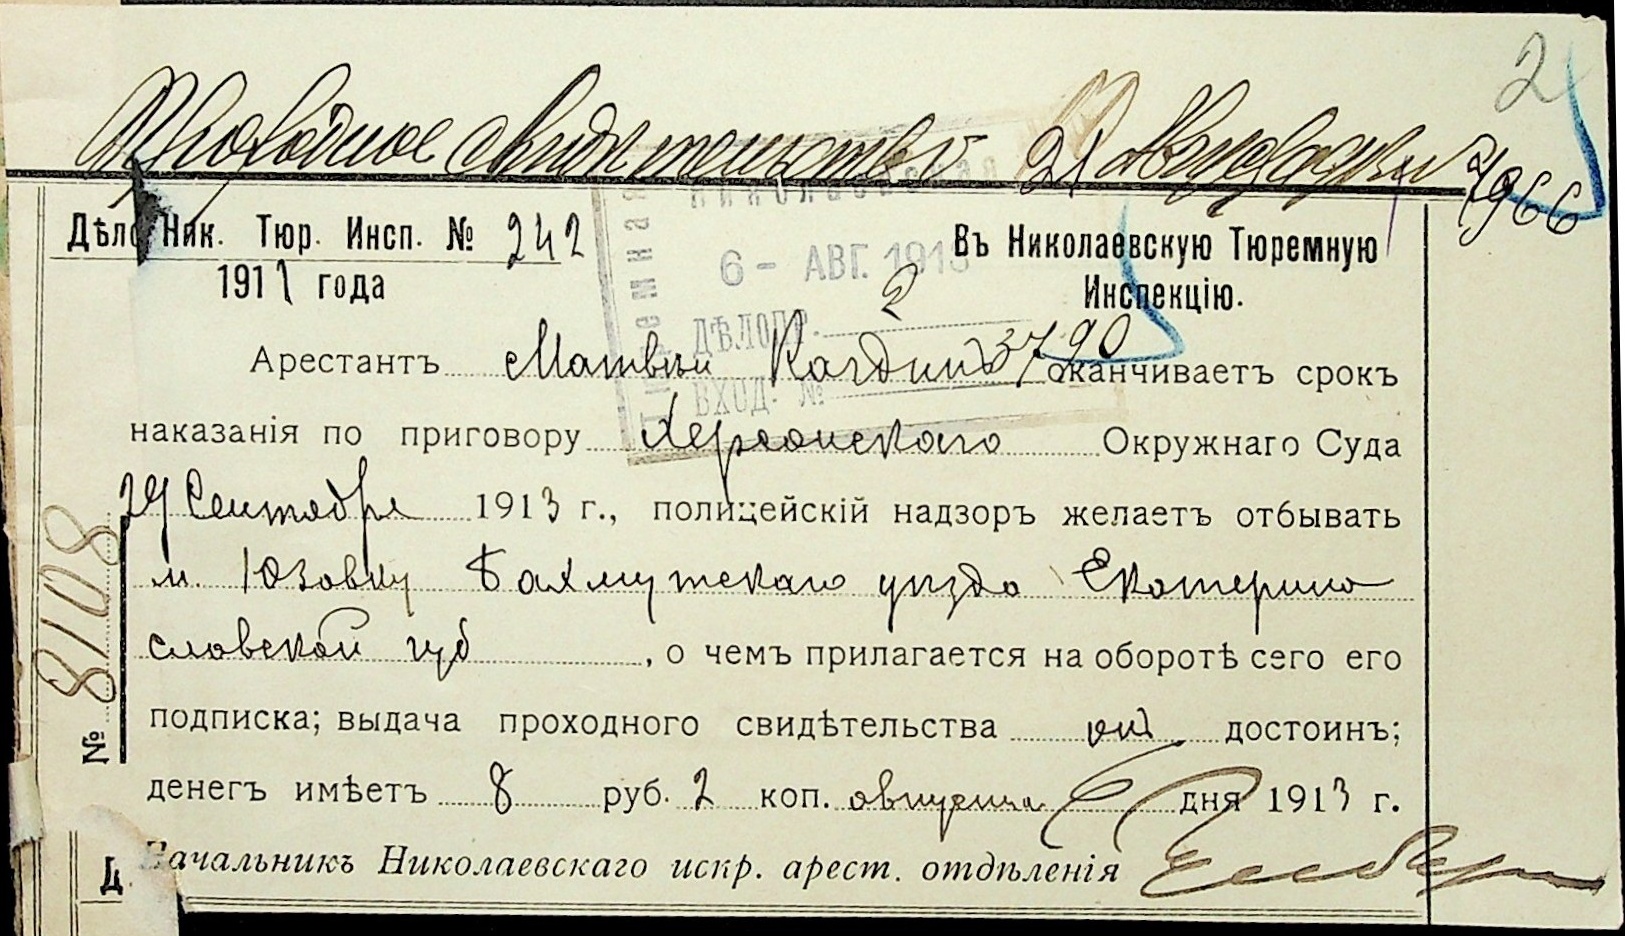 2
Проходное свидетельство 21
7966
Дѣло Ник. Тюр. Инсп. № 242
1911 года
Николаевская
6 - АВГ. 1913
ДѢЛОПР. 2
ВХОД. № 3790
Въ Николаевскую Тюремную
Инспекцію.
Арестантъ Матвѣй оканчиваетъ срокъ
наказанія по приговору Херсонскаго Окружнаго Суда
29 Сентября 1913 г., полицейскій надзоръ желаетъ отбывать
м. Юзовку Бахмутскаго уѣзда Екатерино
славской губ , о чемъ прилагается на оборотѣ сего его
подписка; выдача проходного свидѣтельства онъ достоинъ;
денегъ имѣетъ 8 руб. 2 коп. августа 6 дня 1913 г.
Начальникъ Николаевскаго искр. арест. отдѣленія
№ 8108
Д